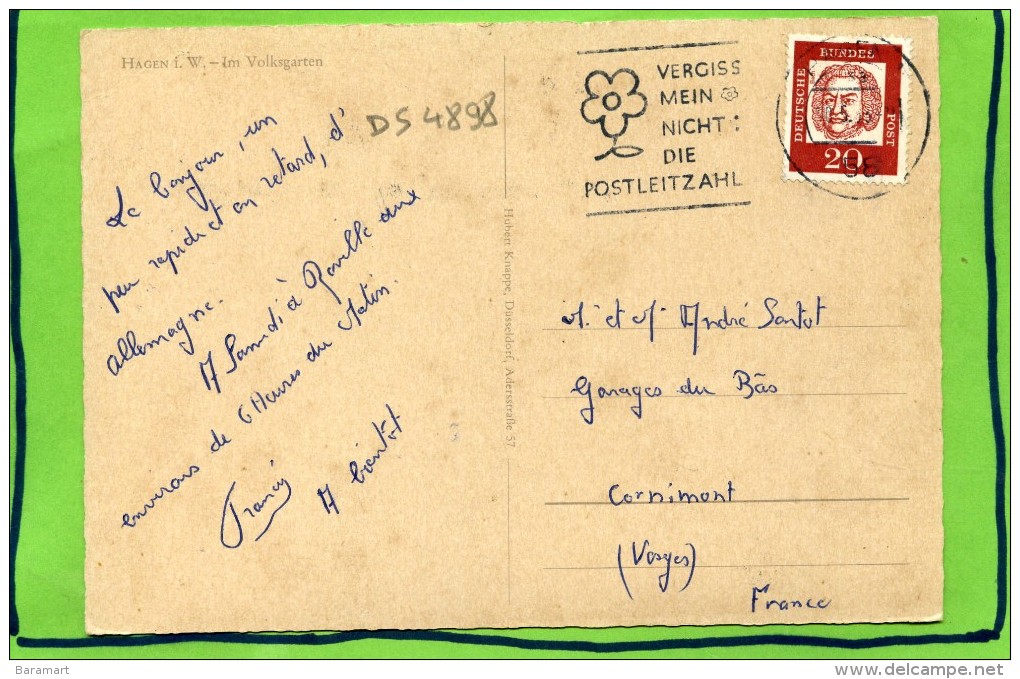 HAGEN i. W. – Im Volksgarten
DS 4898
Le bonjour, un
peu rapide et en retard, d'
allemagne.
A Samedi à Raville aux
environs de 6 Heures du Matin.
A bientôt
Francis
Hubert Knappe, Düsseldorf, Adersstraße 57
VERGISS
MEIN
NICHT:
DIE
POSTLEITZAHL
DEUTSCHE
BUNDES
POST
20
58
M. et M André Santot
Garages du Bas
Cornimont
(Vosges)
France
Baramart
www.delcampe.net